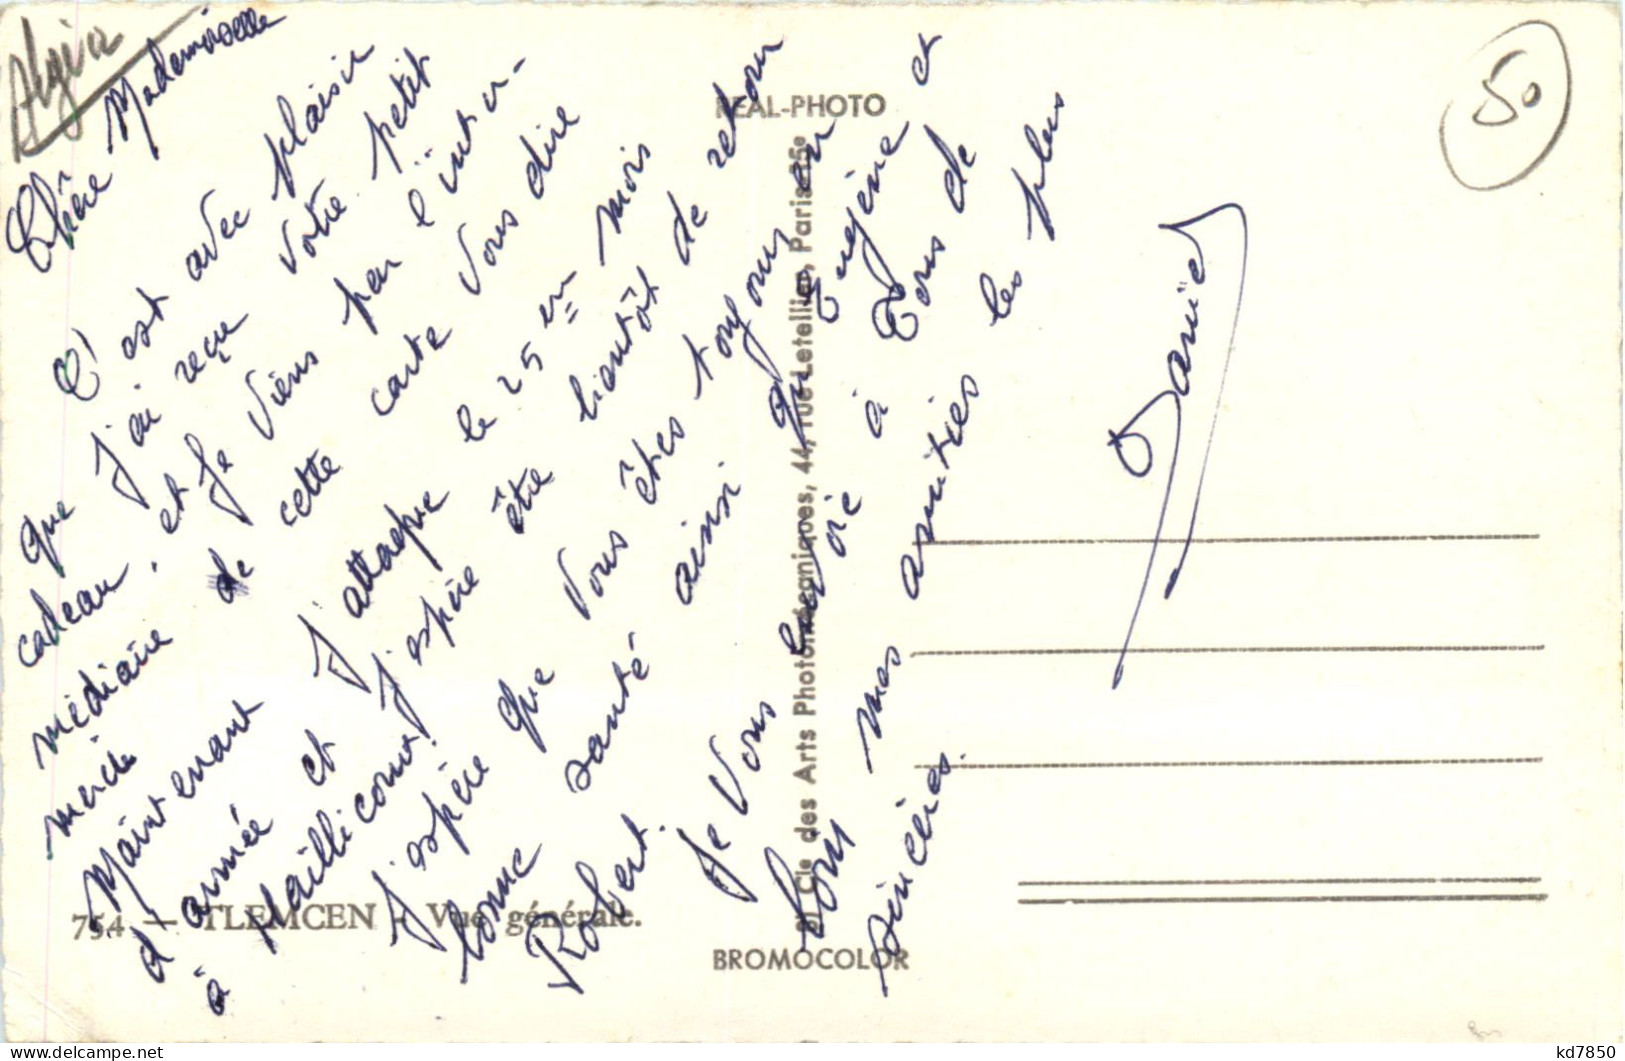 Algier
50
Chère Mademoiselle
C'est avec plaisir
que j'ai reçu votre petit
cadeau, et je viens par l'inter-
médiaire de cette carte vous dire
merci.
Maintenant j'attaque le 25 em mois
d'armée et j'espère être bientôt de retour
à Haillicourt.
J'espère que vous êtes toujours en
bonne santé ainsi qu'Eugène et
Robert.
Je vous envoie à tous de
tous mes amitiés les plus
sincères.
Daniel
REAL-PHOTO
Cie des Arts Photomécaniques, 44, rue Letellier, Paris-15e
754 — TLEMCEN - Vue générale.
BROMOCOLOR
kd7850